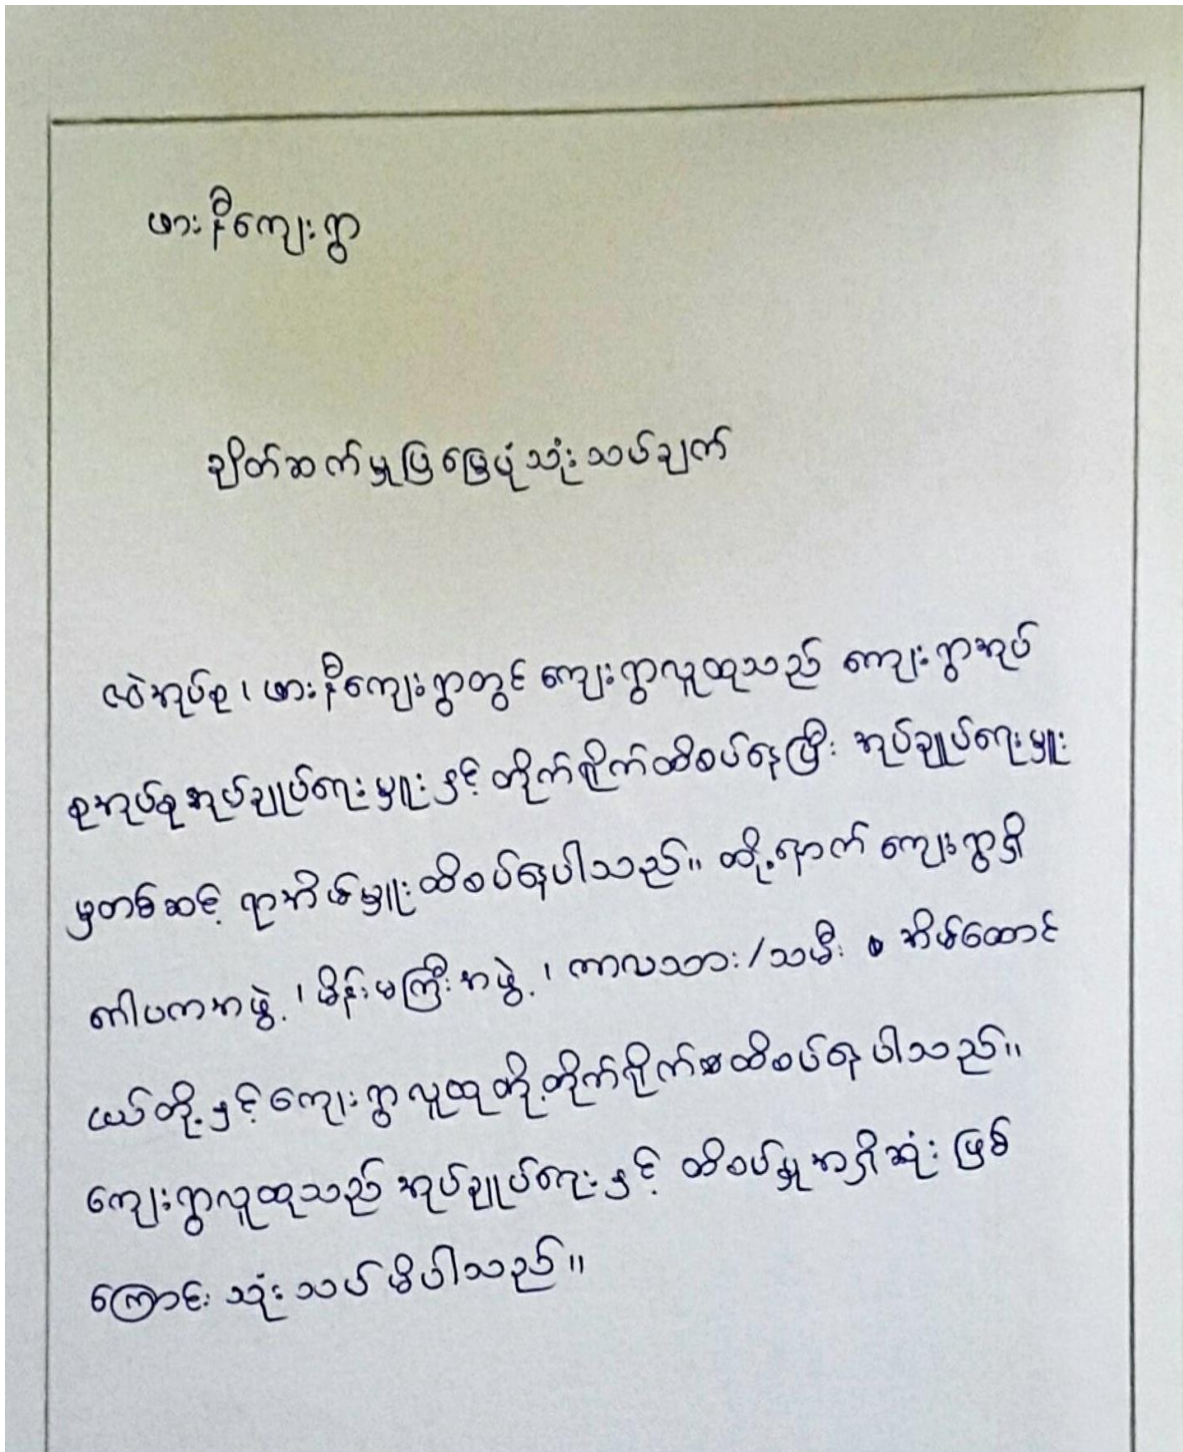 ဖားနီကျေးရွာ
ချိတ်ဆက်မှုပြမြေပုံသုံးသပ်ချက်
လဲအုပ်စု၊ ဖားနီကျေးရွာတွင် ကျေးရွာလူထုသည် ကျေးရွာအုပ်
စုအုပ်စုအုပ်ချုပ်ရေးမှူးနှင့် တိုက်ရိုက်ထိစပ်နေပြီး အုပ်ချုပ်ရေးမှူး
မှတစ်ဆင့် ရာအိမ်မှူးထိစပ်နေပါသည်။ ထို့နောက် ကျေးရွာရှိ
ဂေါပကအဖွဲ့၊ မိန်းမကြီးအဖွဲ့၊ ကာလသား/သမီး အိမ်ထောင်
ငယ်တို့နှင့် ကျေးရွာလူထုတို့တိုက်ရိုက်ထိစပ်နေပါသည်။
ကျေးရွာလူထုသည် အုပ်ချုပ်ရေးနှင့် ထိစပ်မှုအရှိဆုံး ဖြစ်
ကြောင်း သုံးသပ်မိပါသည်။